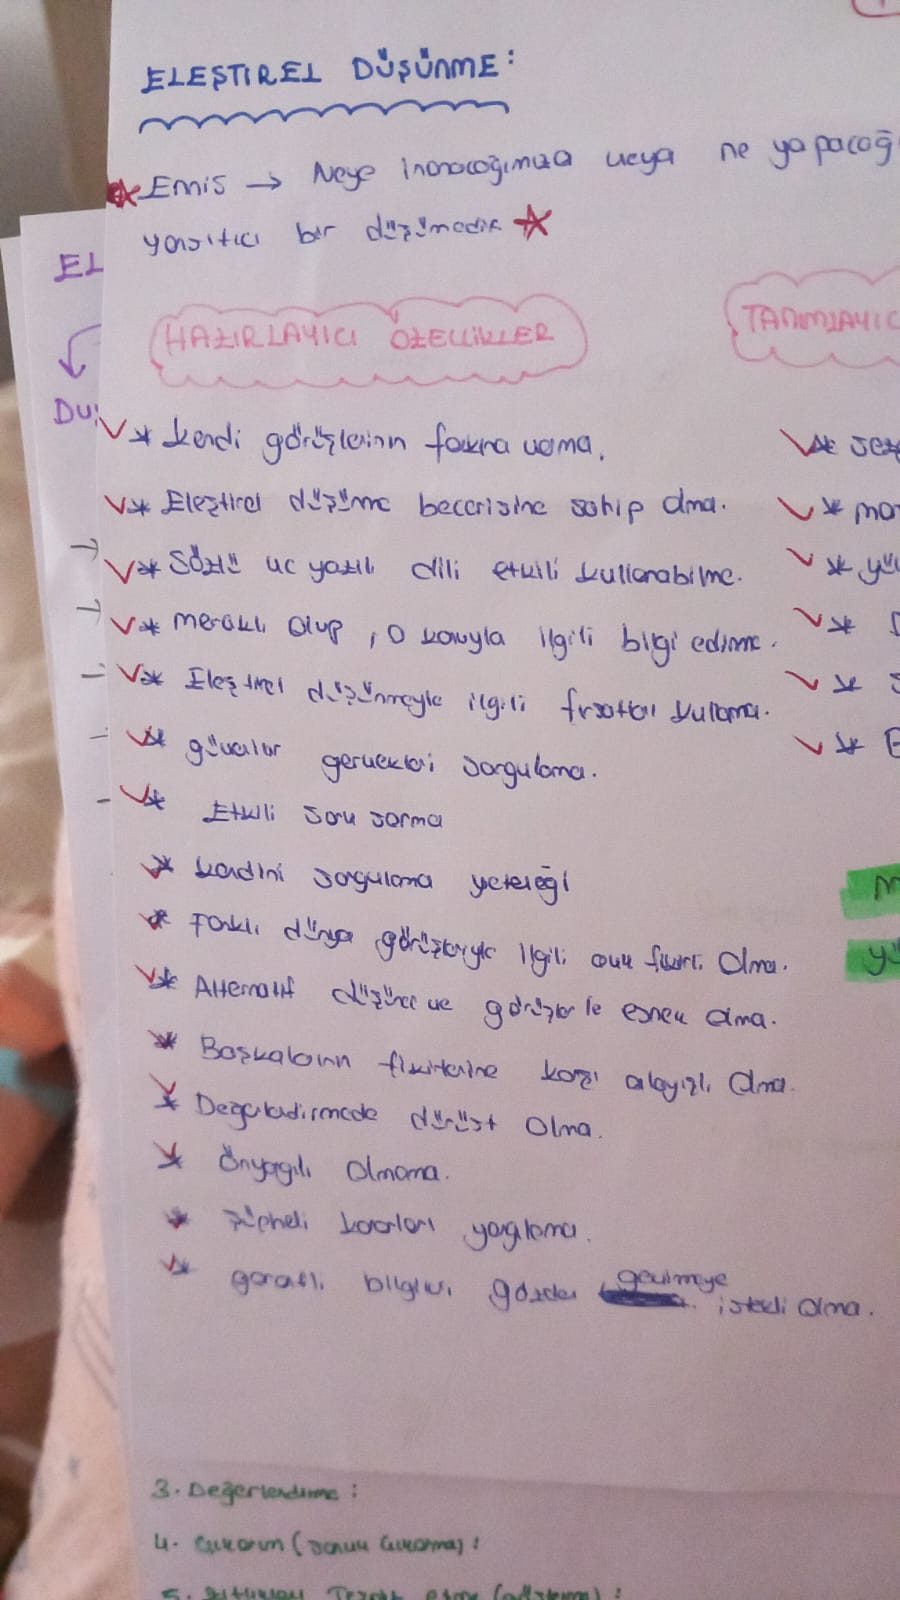 ELEŞTİREL DÜŞÜNME:
Emis → Neye inanacağımıza veya ne yapacağ
yansıtıcı bir düşünmedir
EL
HAZIRLAYICI ÖZELLİKLER
TANIMLAYIC
DU
* Kendi görüşlerinin farkına varma.
* Eleştirel düşünme becerisine sahip olma.
* Sözlü ve yazılı dili etkili kullanabilme.
* meraklı olup, o konuyla ilgili bilgi edinme.
* Eleştirel düşünmeyle ilgili fırsatları kullanma.
* gerçekleri sorgulama.
* Etkili soru sorma
* kendini sorgulama yeteneği
* Farklı dünya görüşleriyle ilgili açık fikirli olma.
* Alternatif düşünce ve görüşlerle esnek olma.
* Başkalarının fikirlerine karşı olma.
* Değerlendirmede dürüst olma.
* Önyargılı olmama.
* şüpheli kararları yargılama.
* gerekli bilgileri gözden geçirmeye istekli olma.
3. Değerlendirme:
4. Çıkarım (sonuç çıkarma):
5.